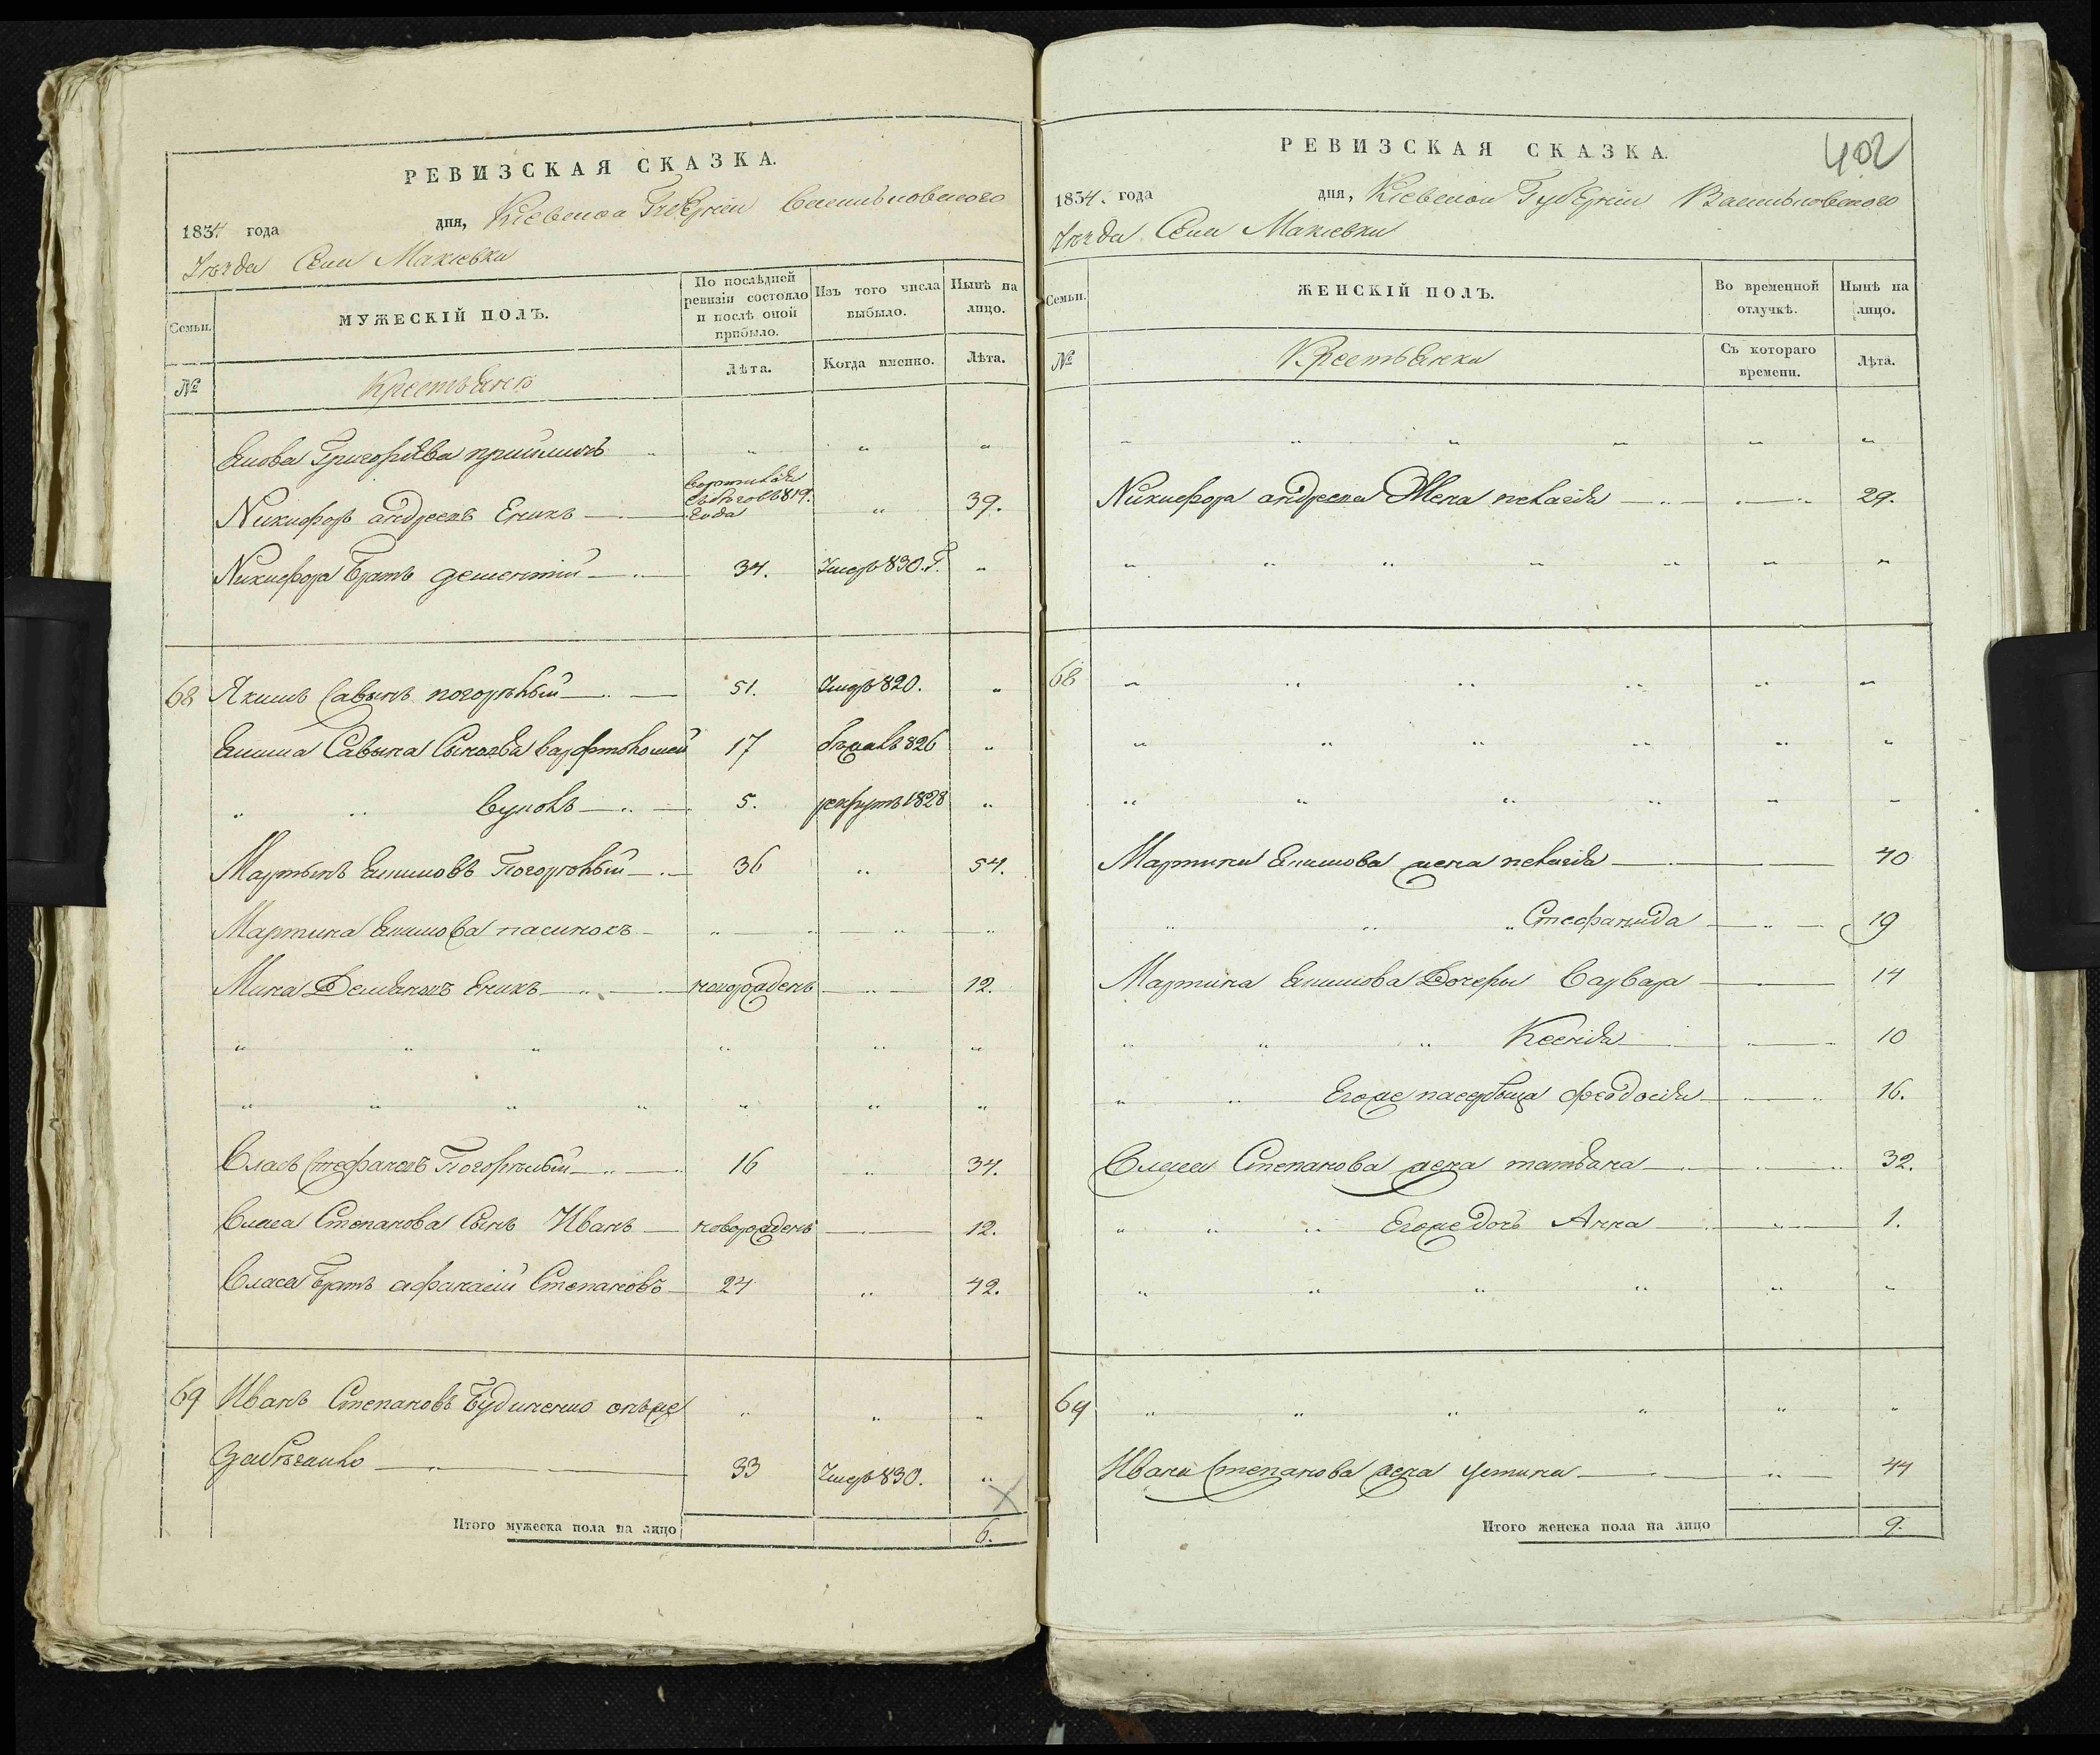 РЕВИЗСКАЯ СКАЗКА.
1834 года дня, Кіевской Губерніи Васильковского
Уезда Села Макіевки
Семьи. МУЖЕСКІЙ ПОЛЪ. По послѣдней ревизіи состояло и послѣ оной прибыло. Изъ того числа выбыло. Нынѣ на лицо.
№ Крестьяне Лѣта. Когда именно. Лѣта.
Якова Григорьева
Никифоръ андреевъ 819. года " 39.
Никифора Братъ дементій 34. Умеръ 830. Г. "
68 Якимъ Савинъ погорѣлый 51. Умеръ 820. "
Якима Савина Сыновья варфтоломей 17 826 "
" " Вуколъ 5. рекрутъ 1828 "
Мартынъ Якимовъ Погорѣлый 36 " 54.
Мартина Якимова пасинокъ " " " "
Мина Демьяновъ новорожденъ " 12.
" " " " " "
" " " " " " "
Власъ Стефановъ Погорѣлый 16 " 34.
Власа Степанова Сынъ Иванъ новорожденъ 12.
Власа Братъ афанасій Степановъ 24 " 42.
69 Иванъ Степановъ онъже " " "
33 Умеръ 830. "
Итого мужеска пола на лицо 6.
РЕВИЗСКАЯ СКАЗКА. 402
1834. года дня, Кіевской Губерніи Васильковского
Уезда Села Макіевки
Семьи. ЖЕНСКІЙ ПОЛЪ. Во временной отлучкѣ. Нынѣ на лицо.
№ Крестьянки Съ котораго времени. Лѣта.
" " " " " "
Никифора андреева Жена пелагія 29.
" " " " " " "
68 " " " " " "
" " " " " "
" " " " " "
Мартина Якимова жена пелагія 40
" " " Стефанида " 19
Мартина Якимова Дочери Варвара 14
" " " Ксенія 10
" " Егоже пасербица феодосія 16.
Власа Степанова жена татьяна 32.
" " " Егоже дочь Анна " 1.
" " " " " "
69 " " " " " "
Ивана Степанова жена устина " 44
Итого женска пола на лицо 9.